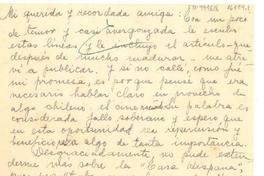 Mi querida y recordada amiga: Con un poco
de temor y casi avergonzada le escribo
estas líneas y le incluyo el artículo que
después de mucho madurar me atre
ví a publicar. Y si no callé, como fué
mi promesa, es porque pensé que era
necesario hablar claro en provecho de
algo chileno; el cine. Su palabra es
considerada fallo soberano y espero, que
en esta oportunidad sea repercusión y
beneficio algo de tanta importancia.
Desgraciadamente, no pude exten
derme más sobre la "Casa